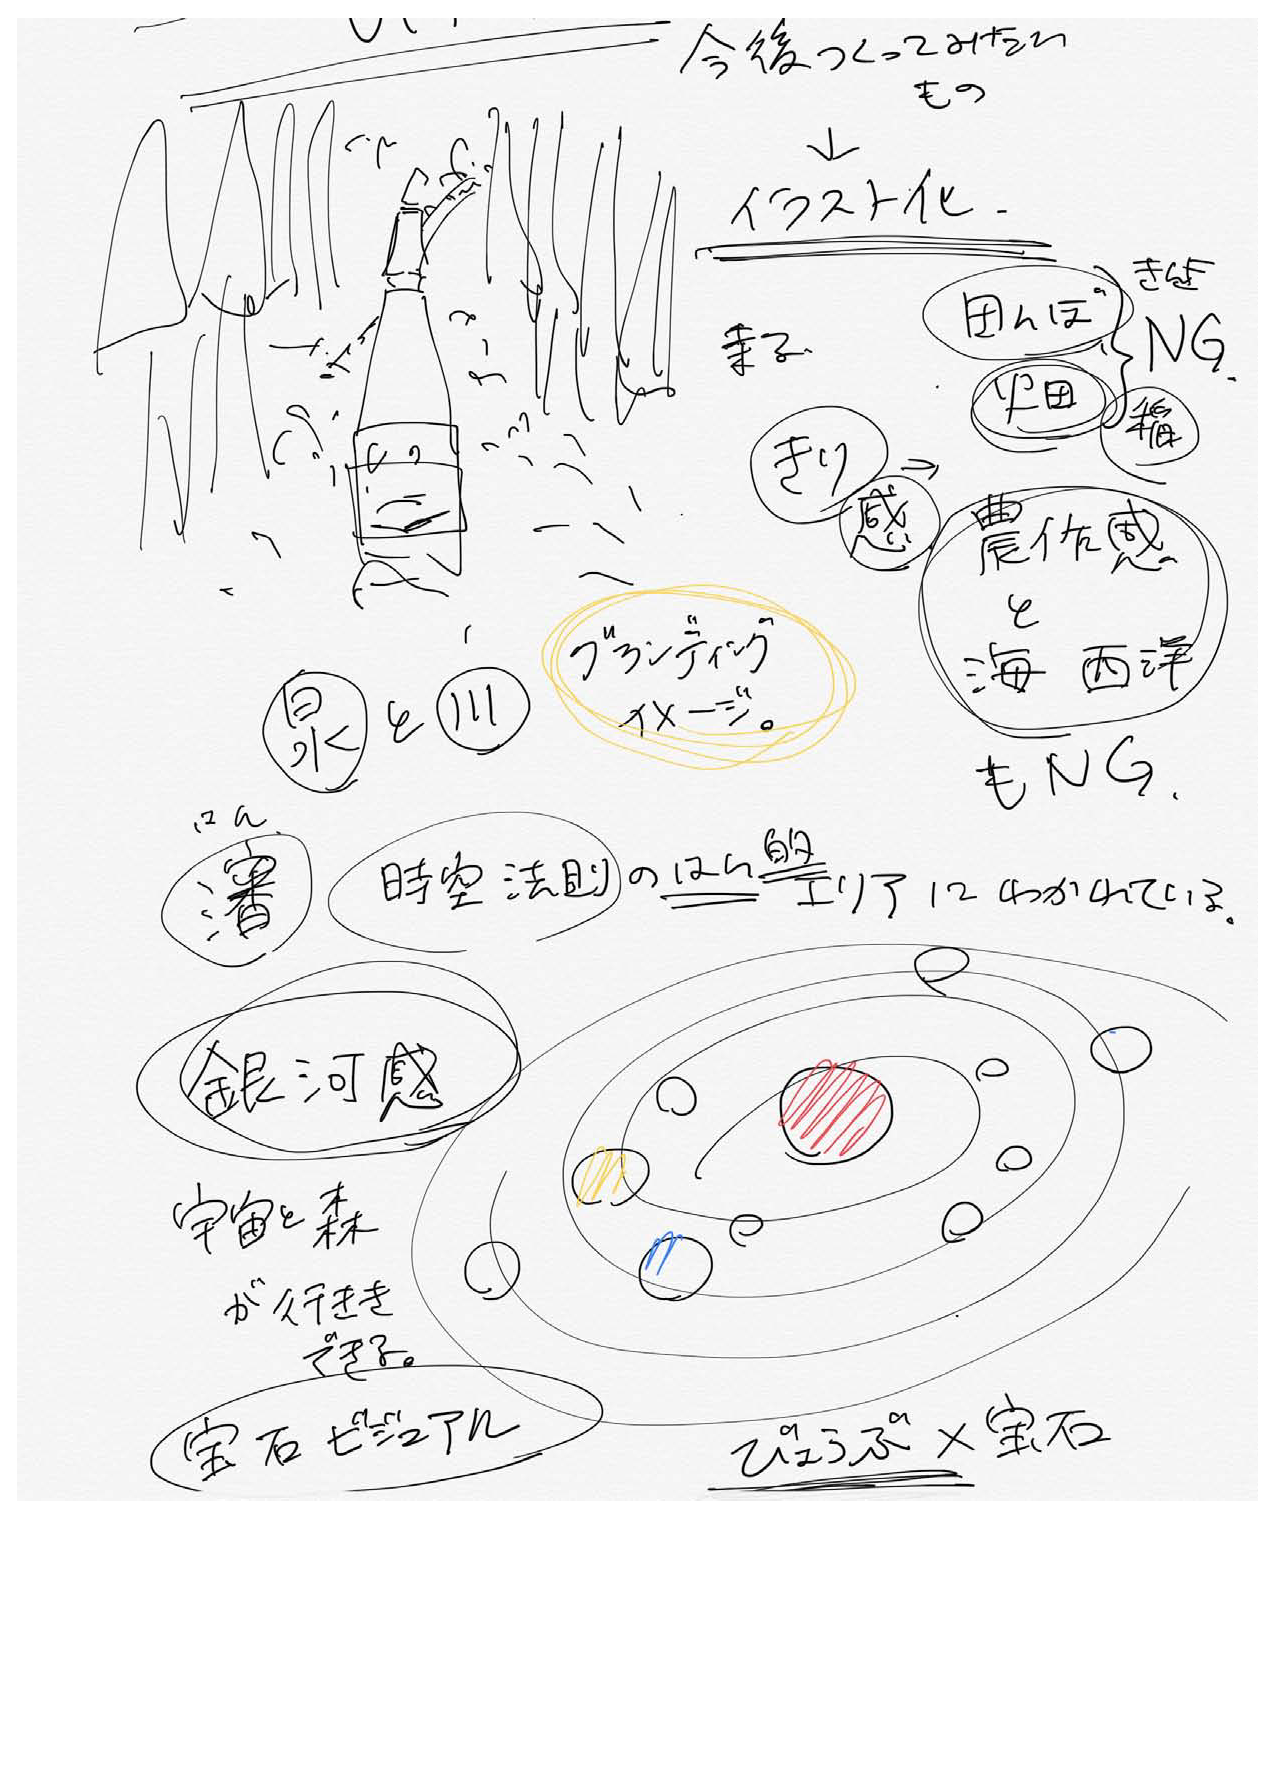 今後つくってみたい
もの
↓
イラスト化.
田んぼ
きんぎ
NG.
来る.
田
稲
きり
感
→
農作感
と
海 西洋
もNG.
ブランディング
イメージ。
泉と川
はん
藩
時空法則のはん的
エリアにわかれている。
銀河感
宇宙と森
が行きき
できる。
宝石ビジュアル
びょうぶ×宝石